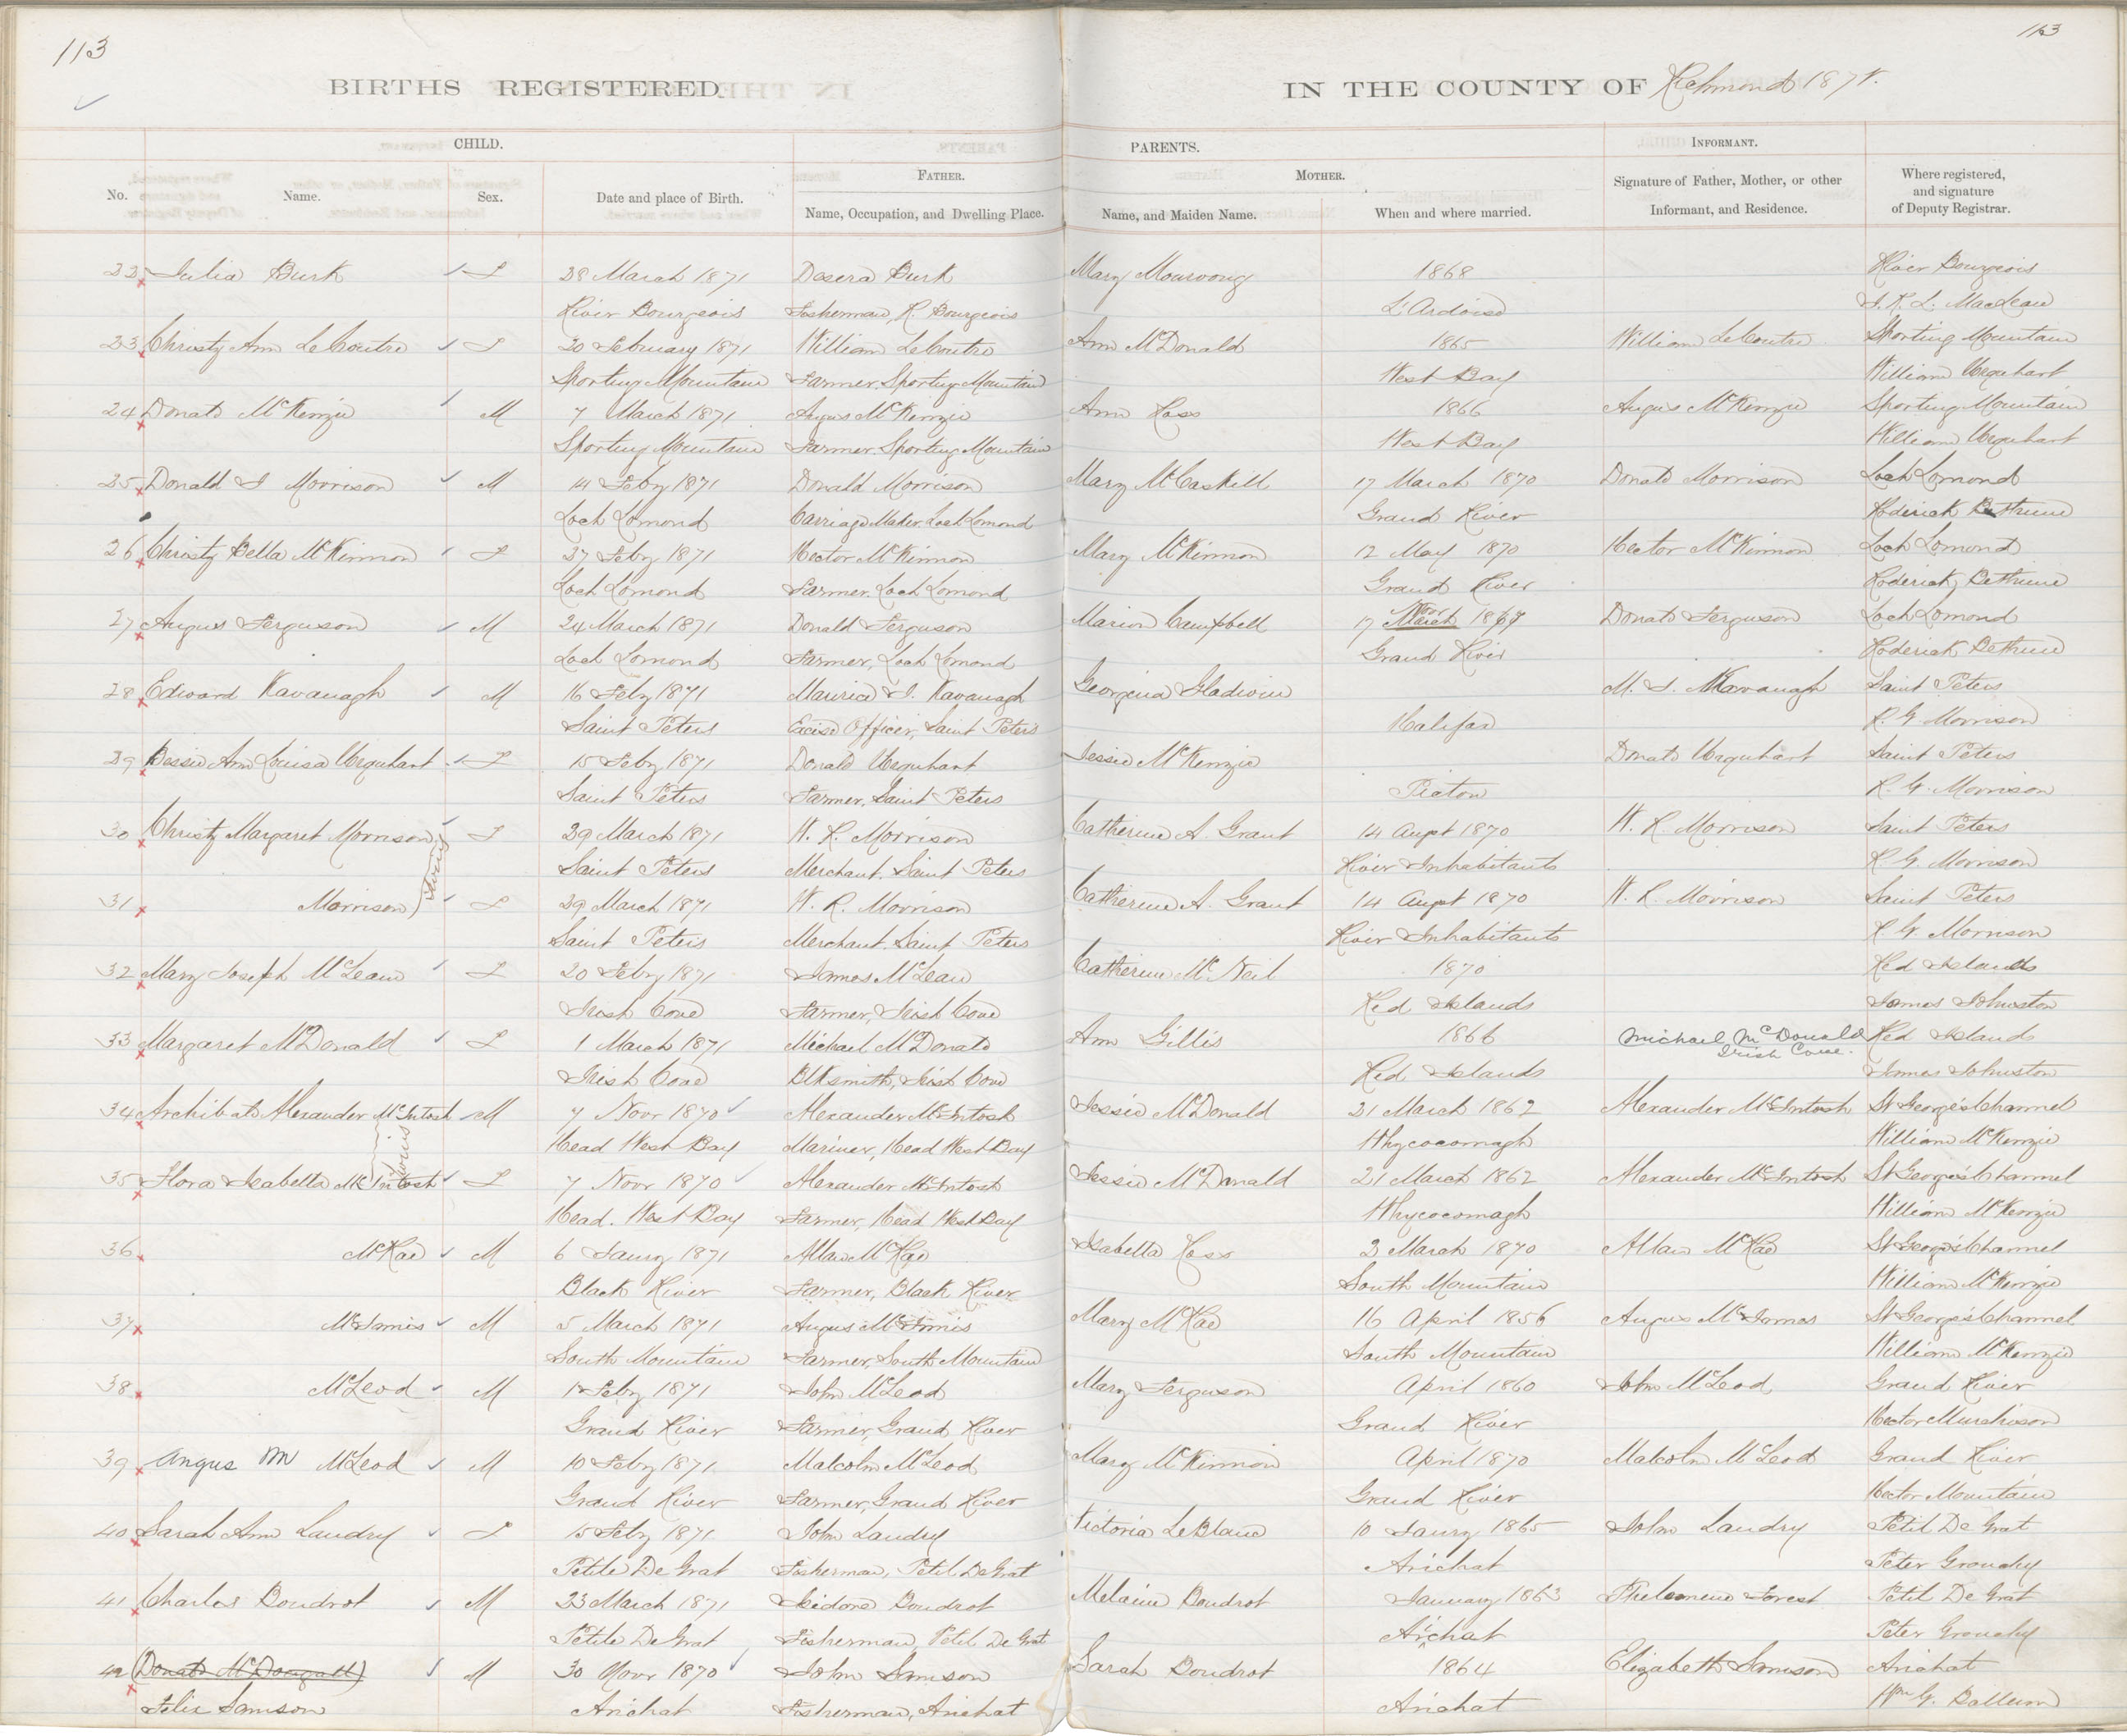 113
113
BIRTHS REGISTERED
IN THE COUNTY OF Richmond 1871.
CHILD.
PARENTS.
INFORMANT.
No.
Name.
Sex.
Date and place of Birth.
FATHER.
Name, Occupation, and Dwelling Place.
MOTHER.
Name, and Maiden Name.
When and where married.
Signature of Father, Mother, or other
Informant, and Residence.
Where registered,
and signature
of Deputy Registrar.
22 Julia Burk F 28 March 1871 Desera Burk Mary 1868 River Bourgeois
River Bourgeois Fisherman, R. Bourgeois L'Ardoise MacLean
23 Christy Ann LeCoutre F 20 February 1871 William LeCoutre Ann McDonald 1865 William LeCoutre Sporting Mountain
Sporting Mountain Farmer, Sporting Mountain West Bay William Urquhart
24 Donald McKenzie M 7 March 1871 Angus McKenzie Ann Ross 1866 Angus McKenzie Sporting Mountain
Sporting Mountain Farmer, Sporting Mountain West Bay William Urquhart
25 Donald J Morrison M 14 Feby 1871 Donald Morrison Mary McCaskill 17 March 1870 Donald Morrison Loch Lomond
Loch Lomond Carriage Maker, Loch Lomond Grand River Roderick Bethune
26 Christy Bella McKinnon F 27 Feby 1871 Hector McKinnon Mary McKinnon 12 May 1870 Hector McKinnon Loch Lomond
Loch Lomond Farmer, Loch Lomond Grand River Roderick Bethune
27 Angus Ferguson M 24 March 1871 Donald Ferguson Marion Campbell 17 March Novr 1869 Donald Ferguson Loch Lomond
Loch Lomond Farmer, Loch Lomond Grand River Roderick Bethune
28 Edward Kavanagh M 16 Feby 1871 Maurice J. Kavanagh Georgina Gladwin M. J. Kavanagh Saint Peters
Saint Peters Excise Officer, Saint Peters Halifax R. G. Morrison
29 Bessie Ann Louisa Urquhart F 15 Feby 1871 Donald Urquhart Jessie McKenzie Donald Urquhart Saint Peters
Saint Peters Farmer, Saint Peters Picton R. G. Morrison
30 Christy Margaret Morrison F 29 March 1871 W. R. Morrison Catherine A. Grant 14 Augst 1870 W. R. Morrison Saint Peters
twins
Saint Peters Merchant, Saint Peters River Inhabitants R. G. Morrison
31 Morrison F 29 March 1871 W. R. Morrison Catherine A. Grant 14 Augst 1870 W. R. Morrison Saint Peters
Saint Peters Merchant, Saint Peters River Inhabitants R. G. Morrison
32 Mary Joseph McLean F 20 Feby 1871 James McLean Catherine McNeil 1870 Red Islands
Irish Cove Farmer, Irish Cove Red Islands James Johnston
33 Margaret McDonald F 1 March 1871 Michael McDonald Ann Gillis 1866 Michael McDonald Red Islands
Irish Cove.
Irish Cove Blksmith, Irish Cove Red Islands James Johnston
34 Archibald Alexander McIntosh M 7 Novr 1870 Alexander McIntosh Jessie McDonald 21 March 1862 Alexander McIntosh St George's Channel
twins
Head West Bay Mariner, Head West Bay Whycocomagh William McKenzie
35 Flora Isabella McIntosh F 7 Novr 1870 Alexander McIntosh Jessie McDonald 21 March 1862 Alexander McIntosh St George's Channel
Head West Bay Farmer, Head West Bay Whycocomagh William McKenzie
36 McRae M 6 Jany 1871 Allan McRae Isabella Ross 3 March 1870 Allan McRae St George's Channel
Black River Farmer, Black River South Mountain William McKenzie
37 McInnis M 5 March 1871 Angus McInnis Mary McRae 16 April 1856 Angus McInnes St George's Channel
South Mountain Farmer, South Mountain South Mountain William McKenzie
38 McLeod M 1 Feby 1871 John McLeod Mary Ferguson April 1860 John McLeod Grand River
Grand River Farmer, Grand River Grand River Hector Murchison
39 Angus M McLeod M 10 Feby 1871 Malcolm McLeod Mary McKinnon April 1870 Malcolm McLeod Grand River
Grand River Farmer, Grand River Grand River Hector Mountain
40 Sarah Ann Landry F 15 Feby 1871 John Landry Victoria LeBlanc 10 Jany 1865 John Landry Petit De Grat
Petite De Grat Fisherman, Petit De Grat Arichat Peter Grouchy
41 Charles Boudrot M 23 March 1871 Isidore Boudrot Melaine Boudrot January 1863 Philomene Forest Petit De Grat
Petite De Grat Fisherman, Petit De Grat Arichat Peter Grouchy
42 (Donald McDougall) M 30 Novr 1870 John Samson Sarah Boudrot 1864 Elizabeth Samson Arichat
Felix Samson Arichat Fisherman, Arichat Arichat Wm G. Ballum